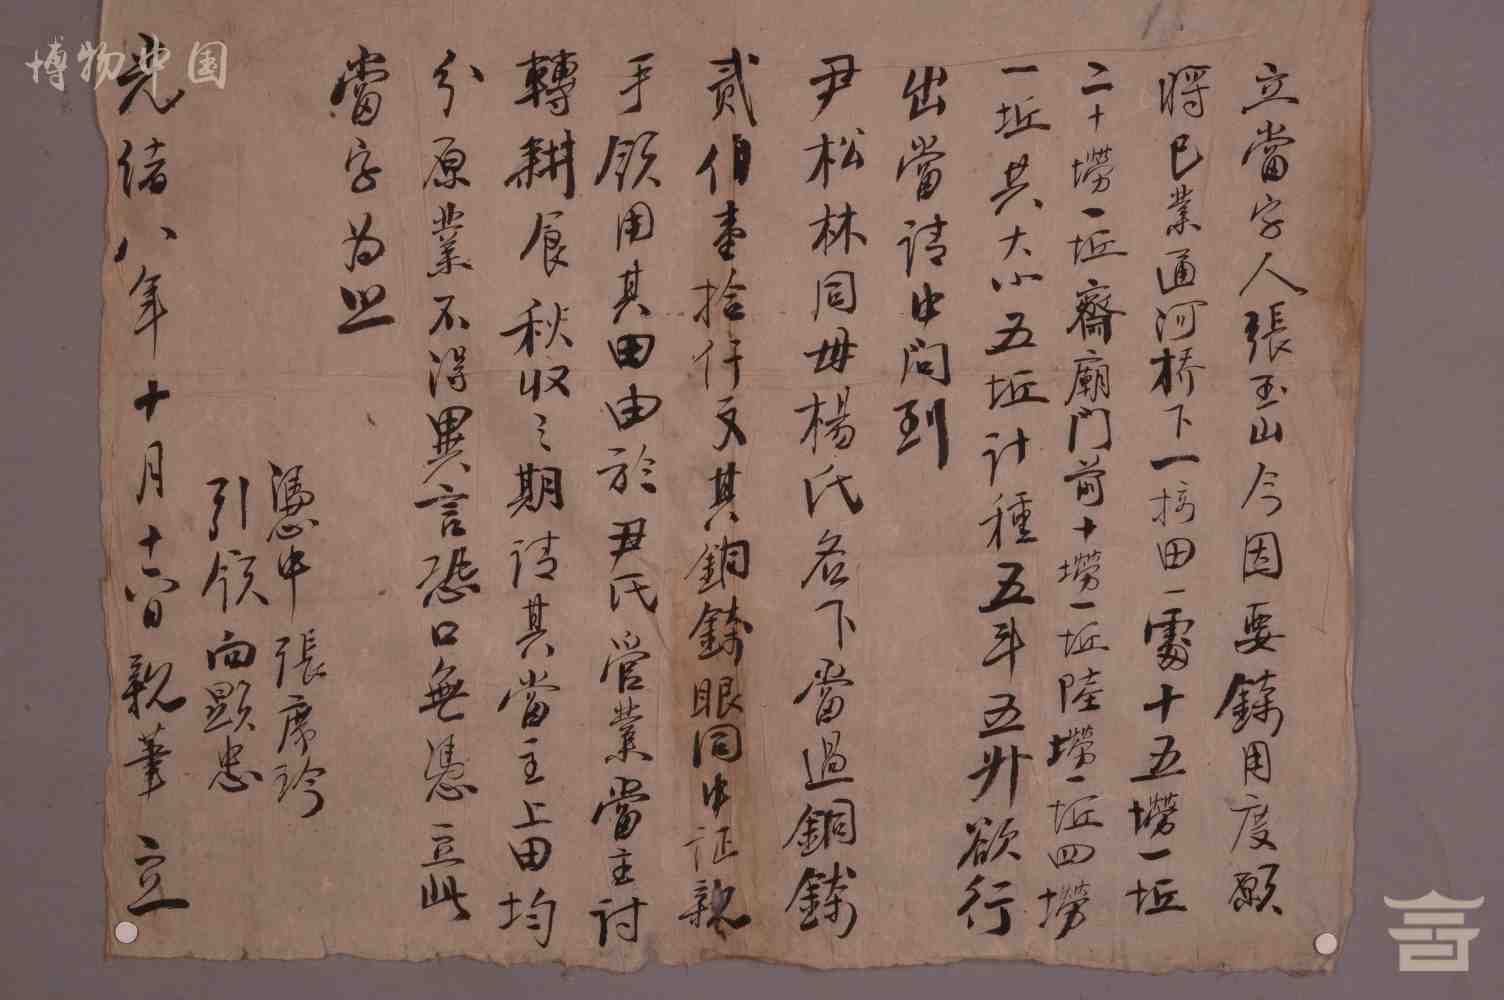 立當字人張玉山今因要錢用度願
將已業通河橋下一塝田一處十五塝一坵
二十塝一坵齋廟門前十塝一坵陸塝一坵四塝
一坵共大小五坵計種五斗五升欲行
出當請中問到
尹松林同毋楊氏名下當過銅錢
貳伯壹拾仟文其銅錢眼同中証親
手領用其田由於尹氏管業當主討
轉耕展秋收之期請其當主上田均
分原業不得異言恐口無憑立此
當字為照
憑中張席珍
引領向顯忠
光緒八年十月十六日親筆立
博物中国